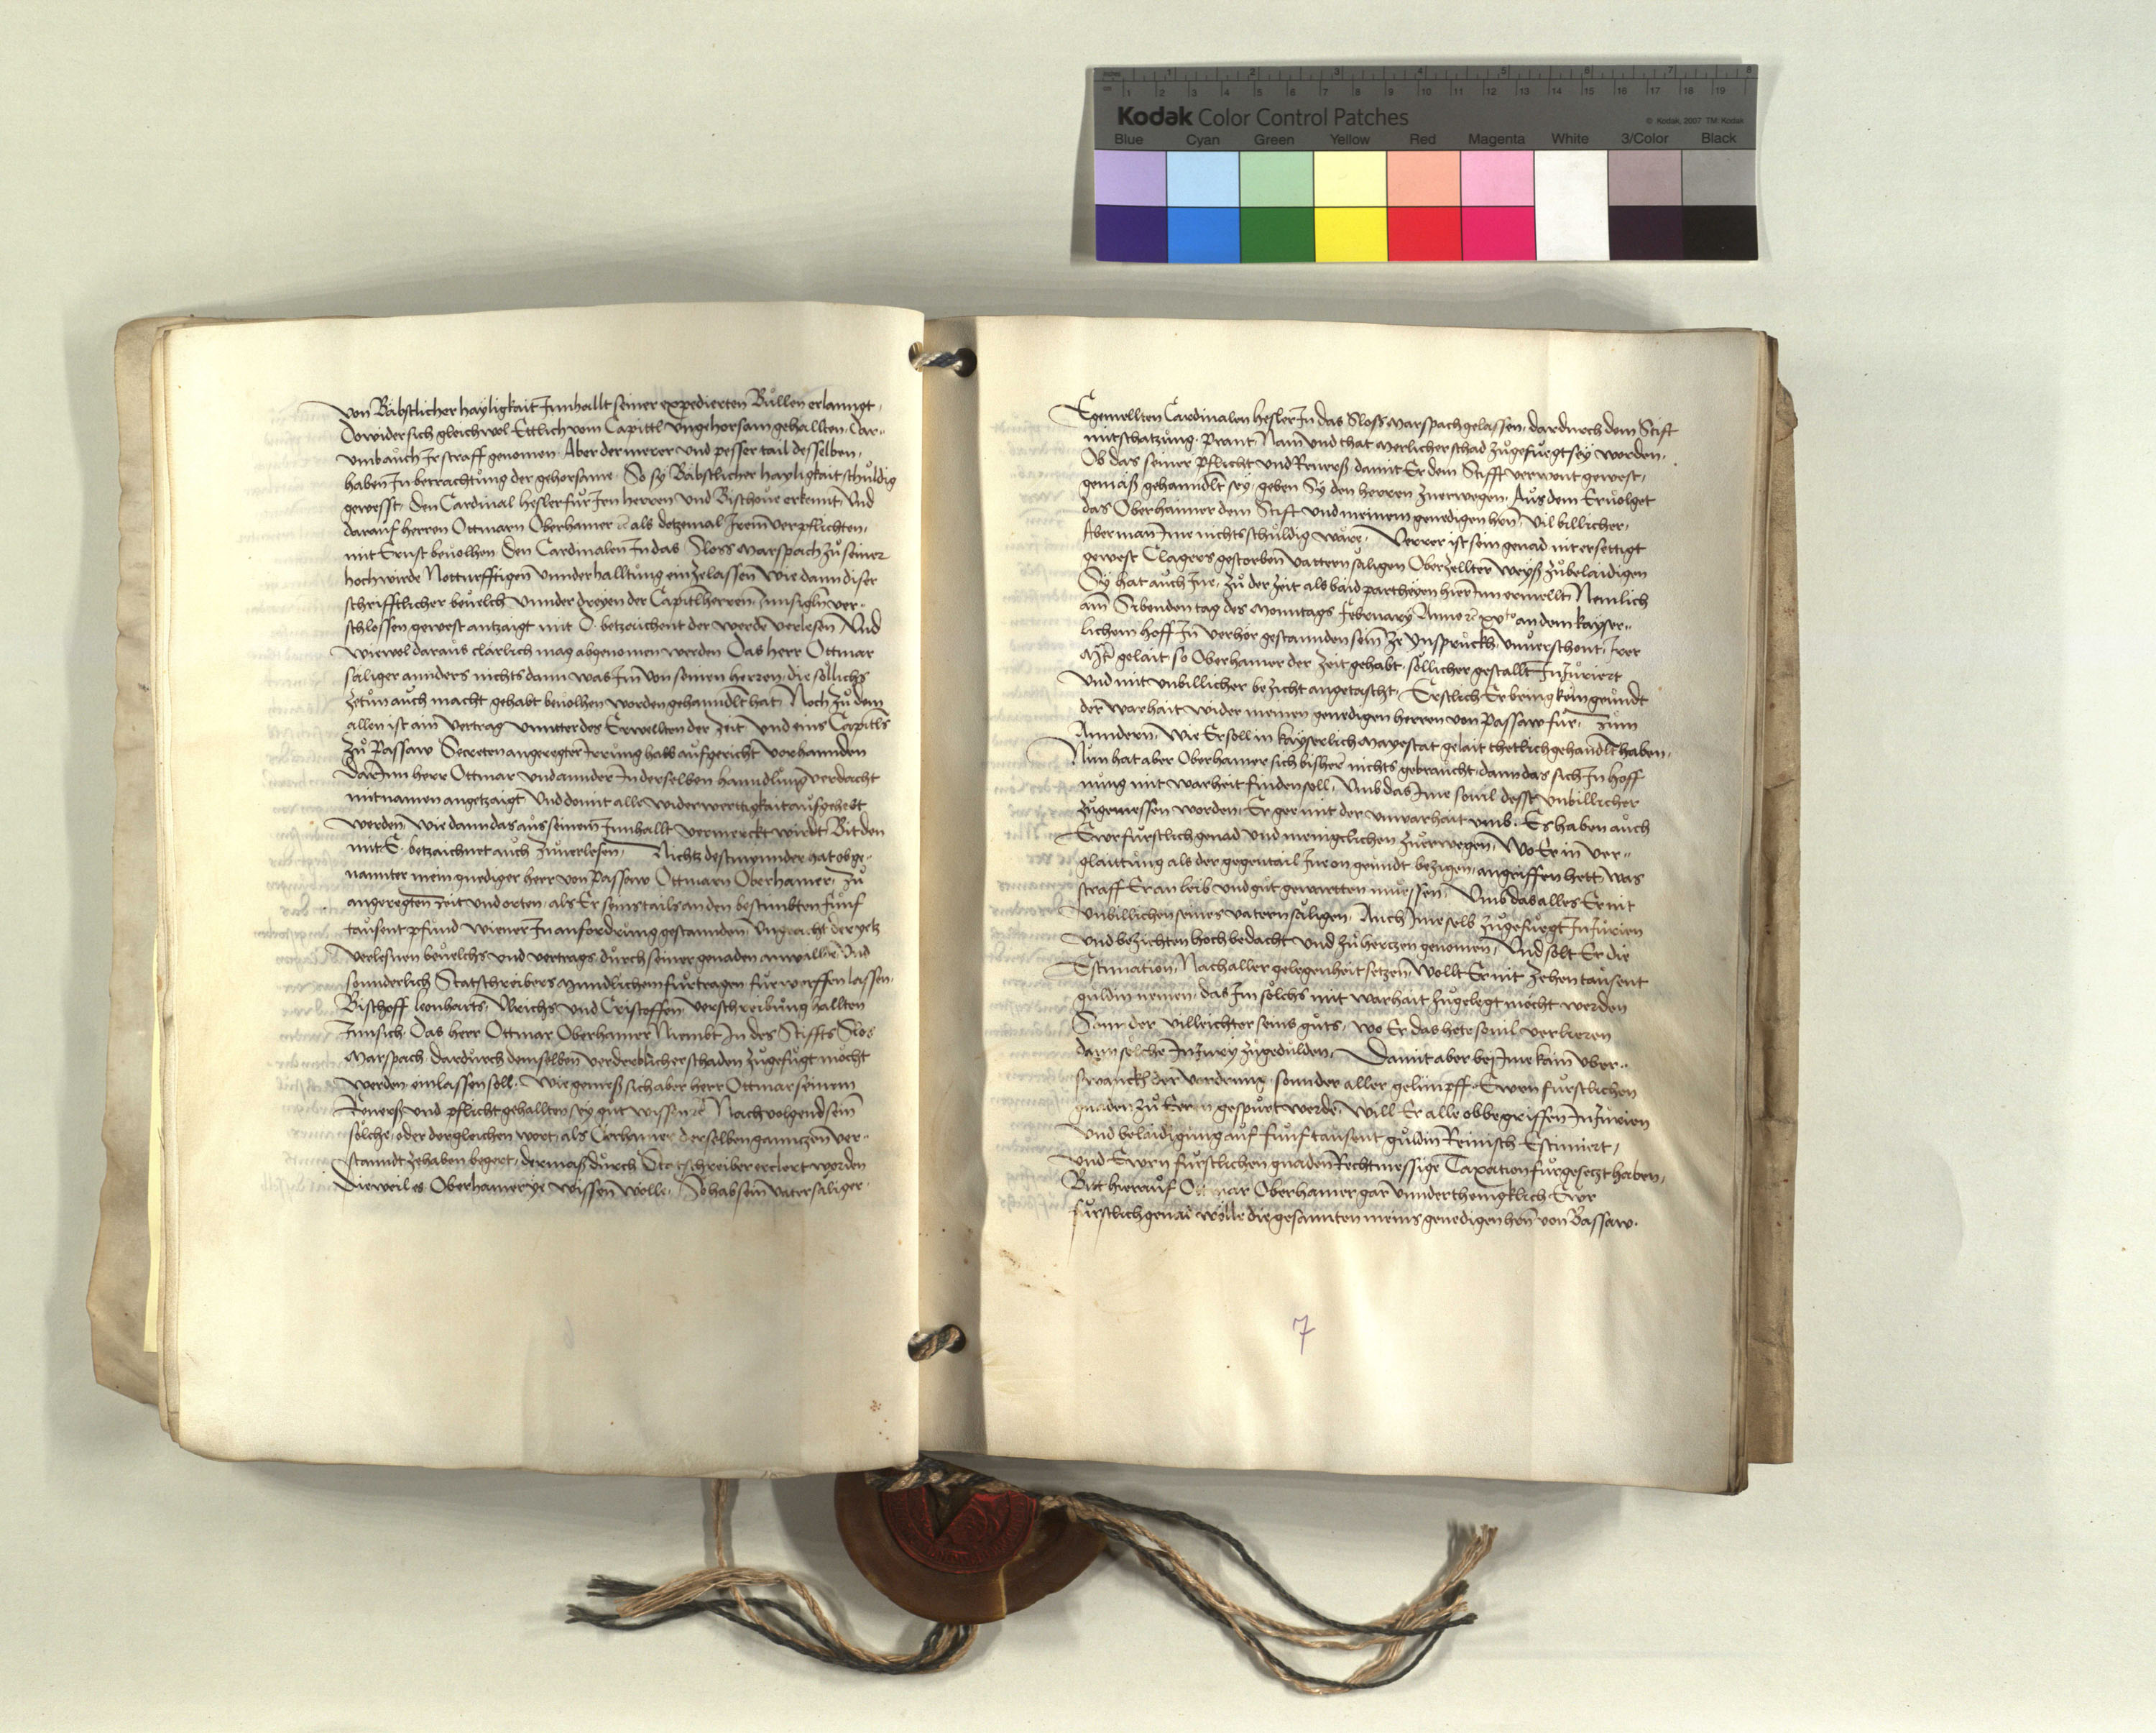 inches 1 2 3 4 5 6 7 8
cm 1 2 3 4 5 6 7 8 9 10 11 12 13 14 15 16 17 18 19
Kodak Color Control Patches
© Kodak, 2007 TM: Kodak
Blue Cyan Green Yellow Red Magenta White 3/Color Black
von Bäbstlicher hayligkait Innhallt seiner expedierten Bullen erlanngt,
Dowider sich gleichwol Ettlich vom Capittl vngehorsam gehallten, Dar-
umb auch Ir straff genomen Aber der merer vnd pesser tail desselben,
haben In betrachtung der gehorsame, So sy Bäbstlicher hayligkait schuldig
gewesst, Den Cardinal Hesler fur Iren herren vnd Bischoue erkennt Vnd
darauf herren Ottmarn Oberhamer als detzemal Irem verpflichten,
mit Ernst beuolhen Den Cardinalen In das Sloss Marspach zu seiner
hochwirde Notturfftigen vnnderhalltung einzelassen Wie dann diser
schrifftlicher beuelch vnnder dreyen der Capitlherren Innsigln ver-
schlossen gewest antzaigt mit D. betzeichent der werde verlesen Vnd
wiewol daraus clärlich mag abgenomen werden Das herr Ottmar
säliger annders nichts dann was Im von seinen herren, die söllichs
zetun auch macht gehabt beuolhen worden gehanndlt hat, Noch zu dem
allen ist ain vertrag vnntter des Erwellten der zeit vnd eins Capitls
zu Passaw Secreten angeregter Irrung halb aufgericht vorhannden
Darinn herr Ottmar vnd annder In derselben hanndlung verdacht
mit namen angetzaigt Vnd domit alle widerwerttigkait aufgehebt
werden, wie dann das aus seinem Innhallt vermerckt wirdt Bit den
mit E. betzaichnet auch zuuerlesen, Nichtz destmynnder hat obge-
nannter mein gnediger herr von Passaw Ottmarn Oberhamer, zu
angeregten zeit vnd orten, als Er seins tails an den bestimbten funf
tausent pfund wiener In anfordrung gestannden Vngeacht der yetz
verlesnen beuelchs vnd vertrags durch seiner genaden anwallde Vnd
sonnderlich Statschreibers mundlichem furtragen furwerffen lassen,
Bischoff Leonharts, Vlrichs vnd Cristoffen verschreibung hallten
Innsich Das herr Ottmar Oberhamer Niembt In des Stiffts Slos
Marspach dardurch demselben verderblicher schaden zugefugt möcht
werden einlassen soll, Wie gemeß sich aber herr Ottmar seinem
Reuerß vnd pflicht gehallten sey gut wissen Nachvolgend sein
solche, oder dergleichen wort, als Oberhamer derselben ganntzen ver-
stanndt zehaben begert, dermaß durch Statschreiber erclert worden
Dieweil es Oberhamer ye wissen wölle, So hab sein vater säliger
Egemellten Cardinalen Hesler In das Sloss Marspach gelassen, dardurch dem Stift
mit schatzung, Prant, Nam vnd that Merlicher schad zugefuegt sey worden,
Ob das seiner pflicht vnd Reuerß damit Er dem Stifft verwont gewest,
gemäß gehanndlt sey, geben Sy den herren zuerwegen, Aus dem Eruolget
das Oberhaimer dem Stift vnd meinem genedigen hern Vil billicher,
Aber man Ime nichts schuldig wäre, Verrer ist sein genad nit ersettigt
gewest Clagers gestorben vattern säligen Oberzellter weyß zubelaidigen
Sy hat auch Ine, zu der zeit als baid partheyen hierinn ermellt Nemlich
am Sibenden tag des Monntags February Anno xv an dem kayser-
lichem hoff In verhör gestannden sein zu Ynsprugkh, vnuerschont, Irer
Mt gelait so Oberhamer der zeit gehabt, söllicher gestallt Iniuriert
Vnd mit vnbillicher bezicht angetascht, Erstlich Er bring kein grundt
der warhait wider meinen genedigen herren von Passaw fur, Zum
Anndern, Wie Er soll in kayserlich Mayestat gelait thetlich gehandlt haben,
Nun hat aber Oberhamer sich bisher nichts gebraucht, dann das sich In hoff
nung mit warheit finden soll, Vmb das Ime souil desst vnbillicher
zugemessen worden, Er gee mit der vnwarhait vmb, Es haben auch
Ewr furstlich genad vnd meniglichen zuerwegen, Wo Er in ver-
glaittung als der gegentail Ine on grundt bezigen, angriffen hett, was
straff Er an leib vnd gut gewartten muessen, Vmb das alles Er mit
Vnbillichen seines vatern säligen, Auch Ime selb zugefuegt Iniurien
vnd bezichten hoch bedacht vnd zu hertzen genomen, Vnd solt Er die
Estimation, Nach aller gelegenheit setzen, Wollt Er nit zehen tausent
guldin nemen, das Im solchs mit warhait zugelegt möcht werden
Sonnder villeichter seins guts, wo Er das hete souil verlieren
dann solche Iniury zugedulden, Damit aber bey Ime kain vber-
swanckh der vordrung, sonnder aller gelimpff, Ewrn furstlichen
gnaden zu Eern gespurt werde, Will Er alle obbegriffen Iniurien
Vnd belaidigung auf funf tausent guldin Reinisch Estimiert,
vnd Ewrn furstlichen gnaden Rechtmessige Taxation furgesetzt haben,
Bitt hierauf Ottmar Oberhamer gar vnnderthenigklich Ewr
furstlich genad wölle die gesannten meins genedigen hern von Bassaw
7